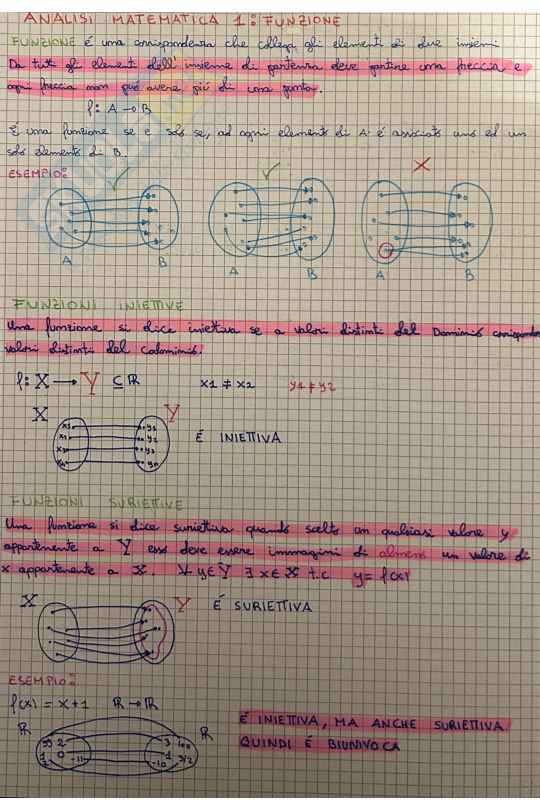 ANALISI MATEMATICA 1: FUNZIONE
FUNZIONE é una corrispondenza che collega gli elementi di due insiemi
Da tutti gli elementi dell'insieme di partenza deve partire una freccia e
ogni freccia non può avere più di una punta.
f: A → B
É una funzione se e solo se, ad ogni elemento di A é associato uno ed un
solo elemento di B.
ESEMPIO:
A B A B A B
FUNZIONI INIETTIVE
Una funzione si dice iniettiva se a valori distinti del Dominio
valori distinti del codominio.
f: X → Y ⊆ ℝ x1 ≠ x2 y1 ≠ y2
X Y
x1 y1
x2 y2
x3 y3
x4 y4
É INIETTIVA
FUNZIONI SURIETTIVE
Una funzione si dice suriettiva quando scelto un qualsiasi valore y
appartenente a Y esso deve essere immagini di almeno un valore di
x appartenente a X. ∀ y ∈ Y ∃ x ∈ X t.c y = f(x)
X Y É SURIETTIVA
ESEMPIO:
f(x) = x + 1 ℝ → ℝ
ℝ ℝ
99 2 3 100
0 1
-11 -10 3/2
É INIETTIVA, MA ANCHE SURIETTIVA.
QUINDI É BIUNIVOCA